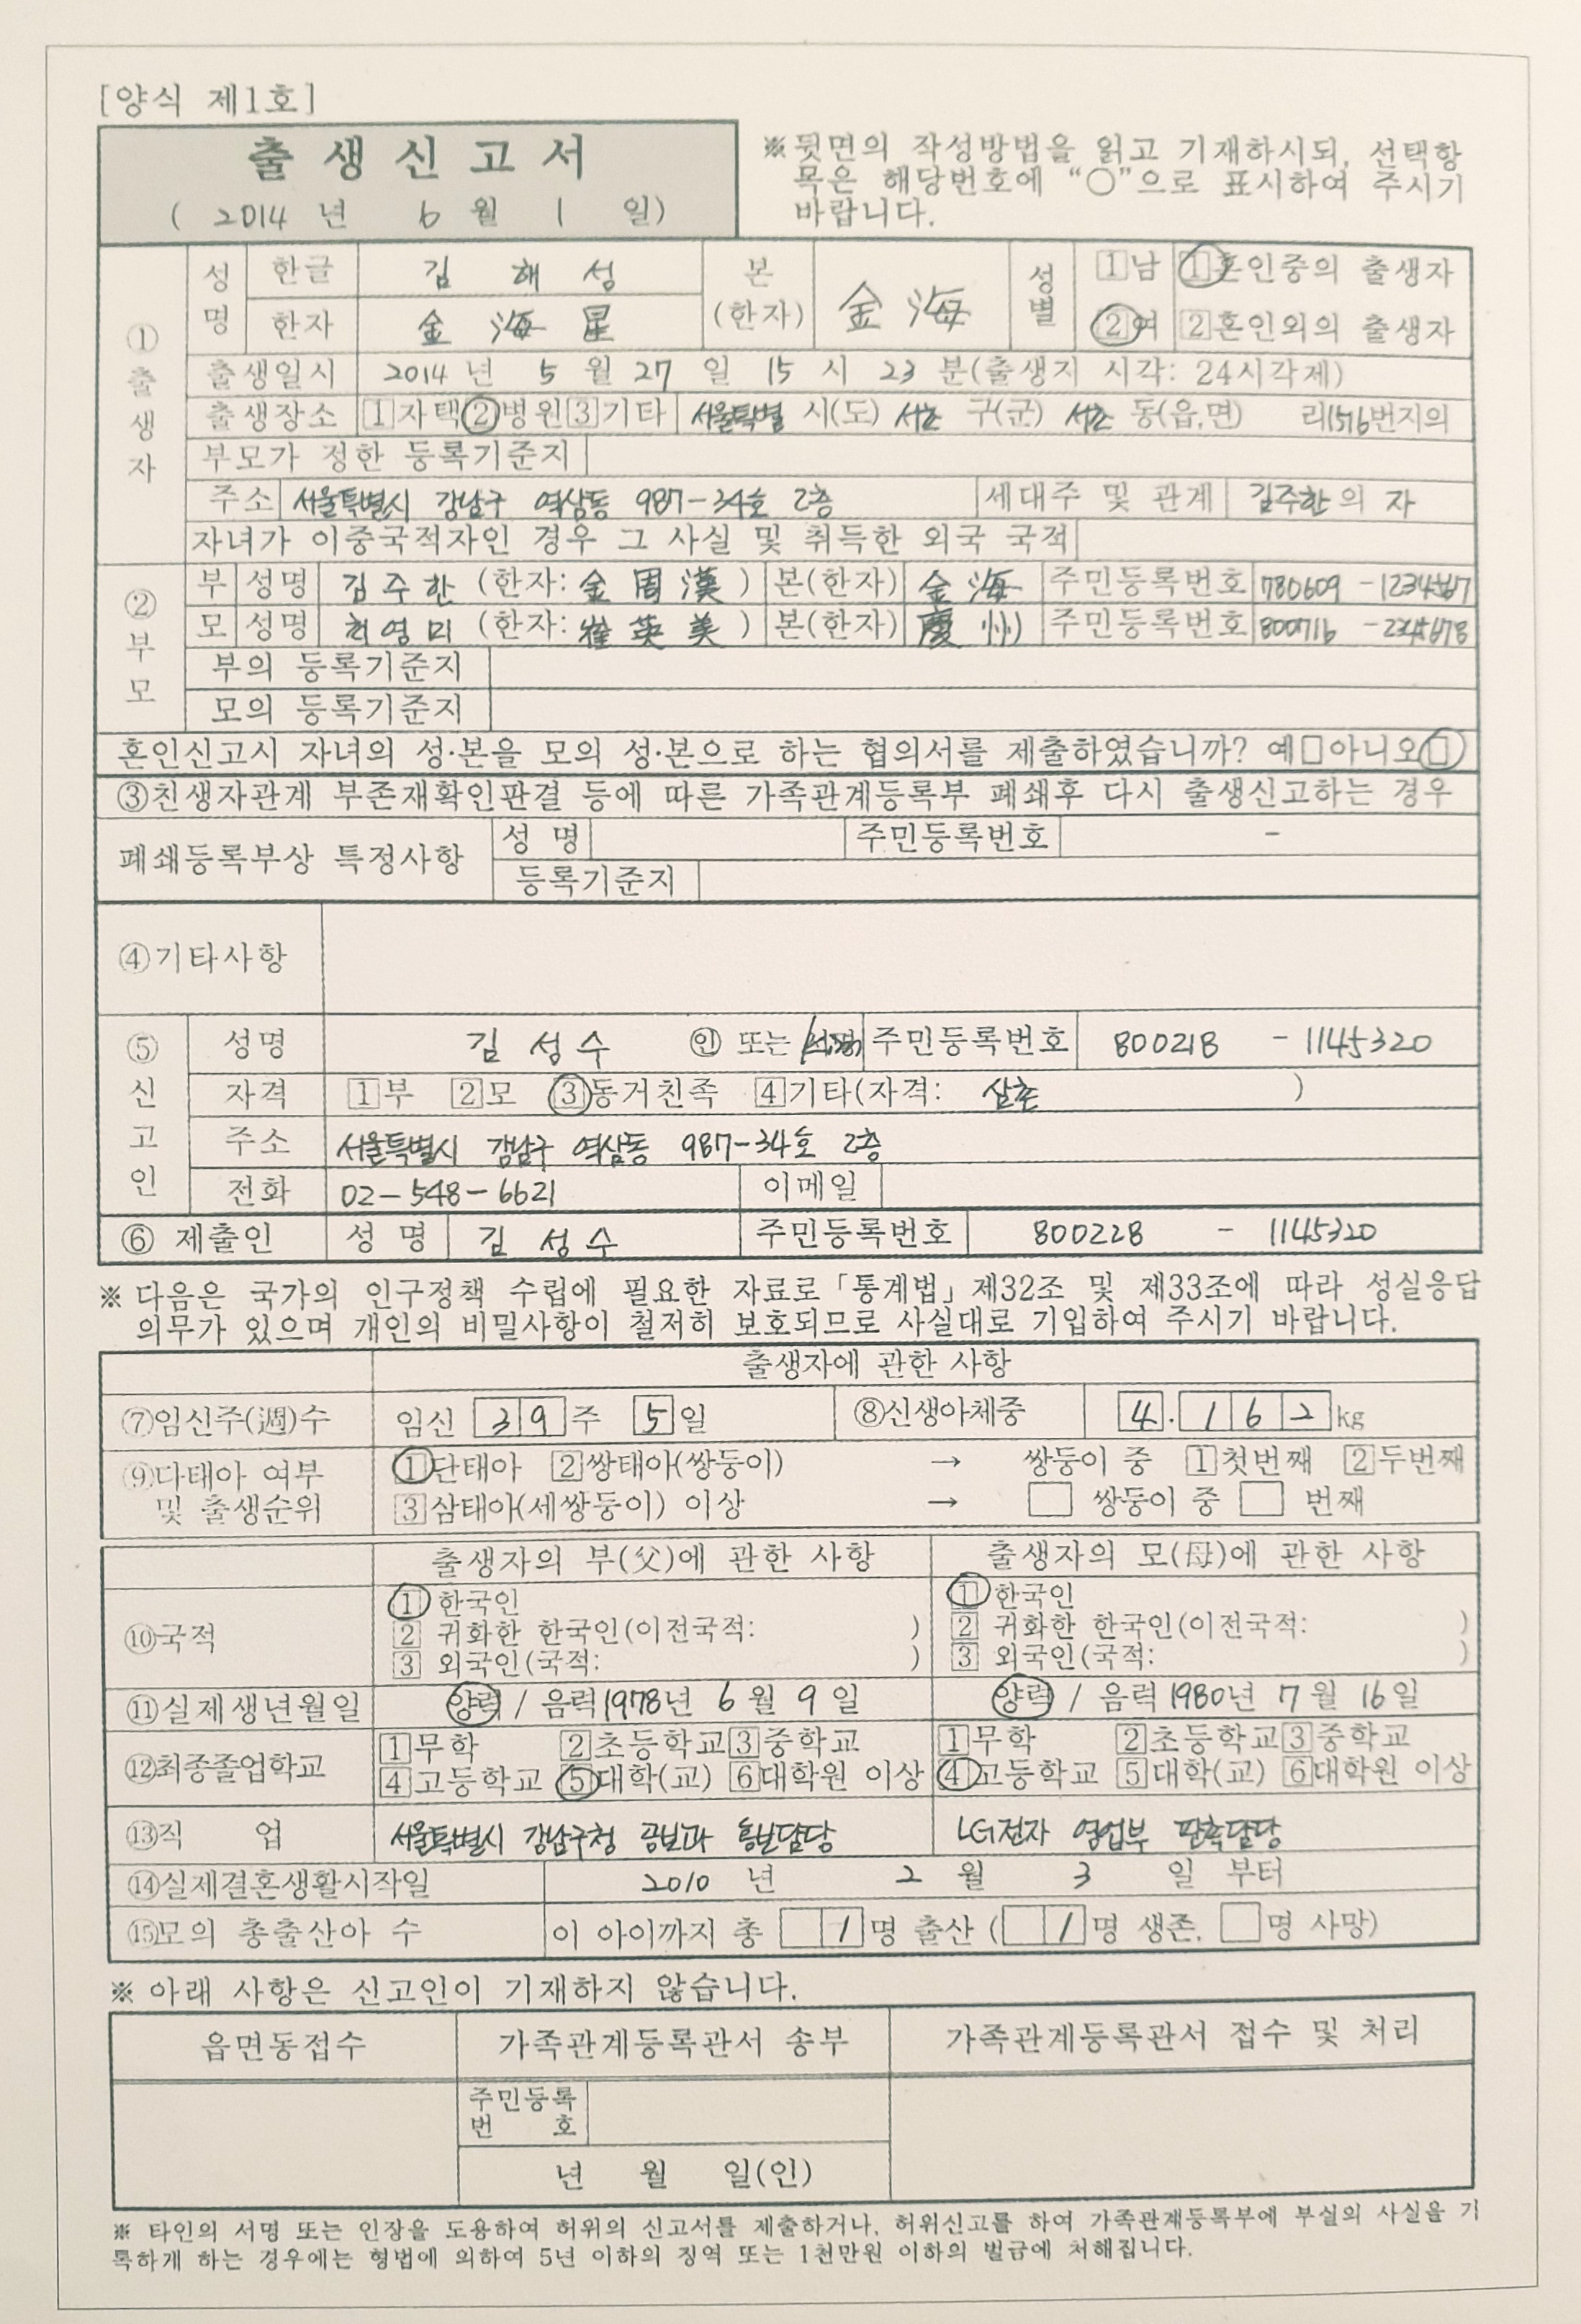 [양식 제1호]
출 생 신 고 서
( 2014 년 6 월 1 일)
※뒷면의 작성방법을 읽고 기재하시되, 선택항
목은 해당번호에 “○”으로 표시하여 주시기
바랍니다.
① 출생자
성명 한글 김 해 성
한자 金 海 星
본(한자) 金 海
성별 1남 2여
1혼인중의 출생자
2혼인외의 출생자
출생일시 2014 년 5 월 27 일 15 시 23 분(출생지 시각: 24시각제)
출생장소 1자택2병원3기타 서울특별 시(도) 서초 구(군) 서초 동(읍,면) 리1516번지의
부모가 정한 등록기준지
주소 서울특별시 강남구 역삼동 987-34호 2층 세대주 및 관계 김주한의 자
자녀가 이중국적자인 경우 그 사실 및 취득한 외국 국적
② 부모
부 성명 김주한 (한자: 金 周 漢 ) 본(한자) 金 海 주민등록번호 780609 -1234567
모 성명 영미 (한자: 崔 英 美 ) 본(한자) 慶 州 주민등록번호 800716 -2345678
부의 등록기준지
모의 등록기준지
혼인신고시 자녀의 성·본을 모의 성·본으로 하는 협의서를 제출하였습니까? 예□아니오□
③친생자관계 부존재확인판결 등에 따른 가족관계등록부 폐쇄후 다시 출생신고하는 경우
폐쇄등록부상 특정사항 성 명 주민등록번호 -
등록기준지
④기타사항
⑤ 신고인
성명 김 성 수 ㊞ 또는 서명 주민등록번호 800218 - 1145320
자격 1부 2모 3동거친족 4기타(자격: 삼촌 )
주소 서울특별시 강남구 역삼동 987-34호 2층
전화 02-548-6621 이메일
⑥ 제출인 성 명 김 성 수 주민등록번호 800228 - 1145320
※ 다음은 국가의 인구정책 수립에 필요한 자료로「통계법」제32조 및 제33조에 따라 성실응답
의무가 있으며 개인의 비밀사항이 철저히 보호되므로 사실대로 기입하여 주시기 바랍니다.
출생자에 관한 사항
⑦임신주(週)수 임신 39주 5일 ⑧신생아체중 4.162kg
⑨다태아 여부 및 출생순위
1단태아 2쌍태아(쌍둥이) → 쌍둥이 중 1첫번째 2두번째
3삼태아(세쌍둥이) 이상 → □ 쌍둥이 중 □ 번째
출생자의 부(父)에 관한 사항 출생자의 모(母)에 관한 사항
⑩국적
1 한국인 1 한국인
2 귀화한 한국인(이전국적: ) 2 귀화한 한국인(이전국적: )
3 외국인(국적: ) 3 외국인(국적: )
⑪실제생년월일 양력 / 음력 1978년 6 월 9 일 양력 / 음력 1980년 7 월 16일
⑫최종졸업학교
1무학 2초등학교3중학교 1무학 2초등학교3중학교
4고등학교 5대학(교) 6대학원 이상 4고등학교 5대학(교) 6대학원 이상
⑬직 업 서울특별시 강남구청 공보과 홍보담당 LG전자 영업부 판촉담당
⑭실제결혼생활시작일 2010 년 2 월 3 일 부터
⑮모의 총출산아 수 이 아이까지 총 1명 출산 ( 1명 생존, □명 사망)
※ 아래 사항은 신고인이 기재하지 않습니다.
읍면동접수 가족관계등록관서 송부 가족관계등록관서 접수 및 처리
주민등록
번 호
년 월 일(인)
※ 타인의 서명 또는 인장을 도용하여 허위의 신고서를 제출하거나, 허위신고를 하여 가족관계등록부에 부실의 사실을 기
록하게 하는 경우에는 형법에 의하여 5년 이하의 징역 또는 1천만원 이하의 벌금에 처해집니다.